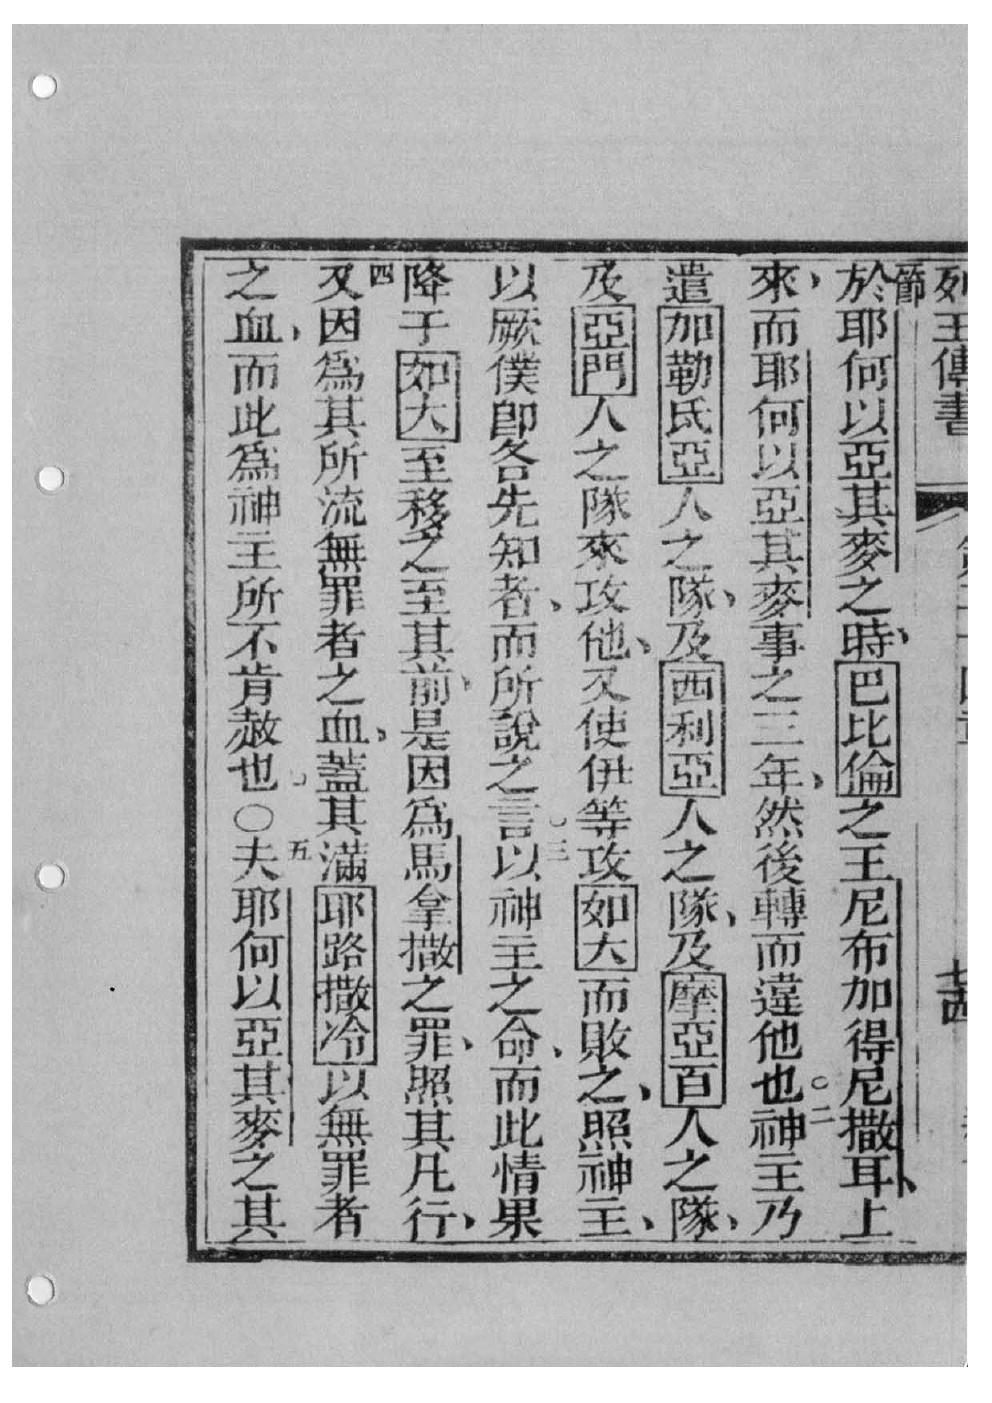 列王傳書
節
於耶何以亞其麥之時、巴比倫之王尼布加得尼撒耳、上
來、而耶何以亞其麥事之三年、然後轉而違他也。二神主乃
遣加勒氐亞人之隊、及西利亞人之隊、及摩亞百人之隊、
及亞門人之隊來攻他、又使伊等攻如大而敗之、照神主、
以厥僕卽各先知者、而所說之言。三以神主之命、而此情果
降于如大至移之至其前、是因爲馬拿撒之罪、照其凡行、
四又因爲其所流無罪者之血、蓋其滿耶路撒冷以無罪者
之血、而此爲神主所不肯赦也。〇五夫耶何以亞其麥之其